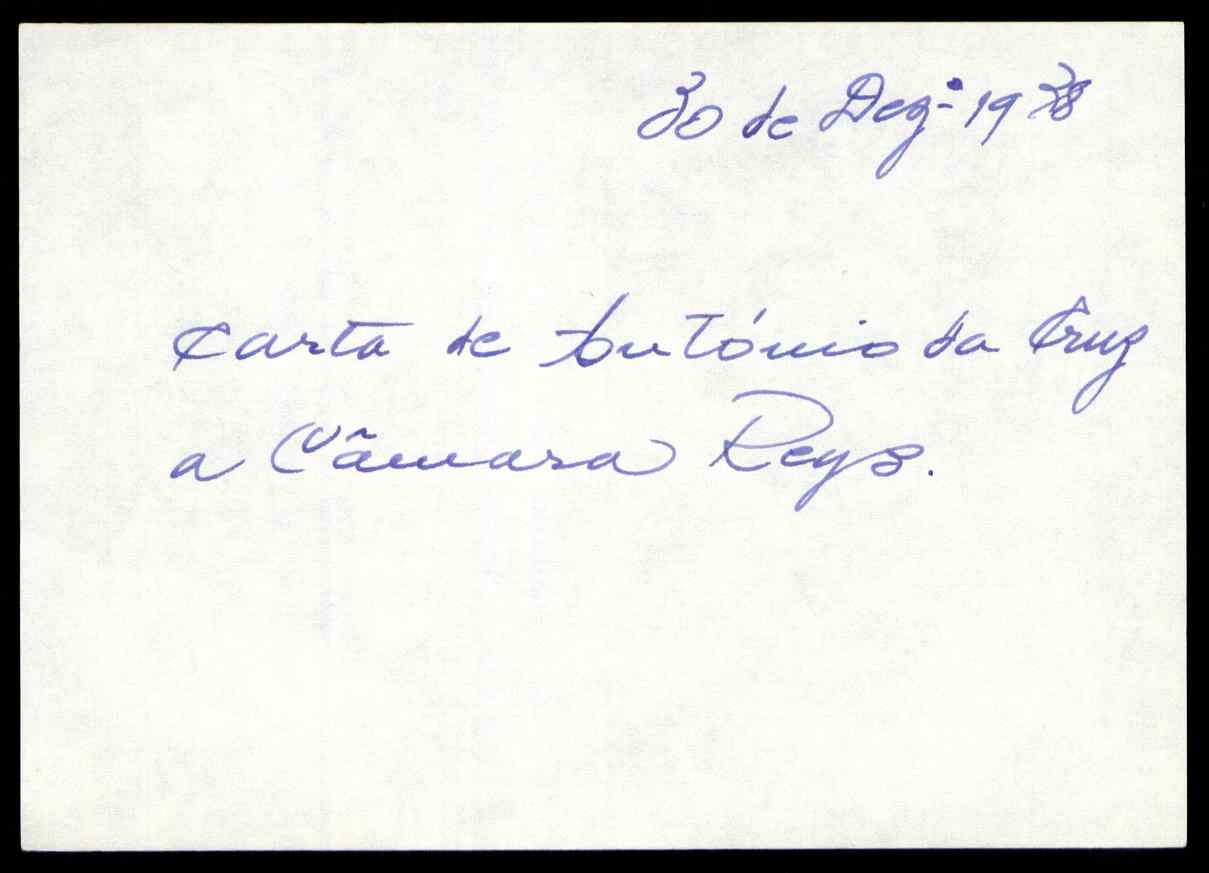 30 de Dez.º 1938
Carta de António da Cruz
a Câmara Reys.